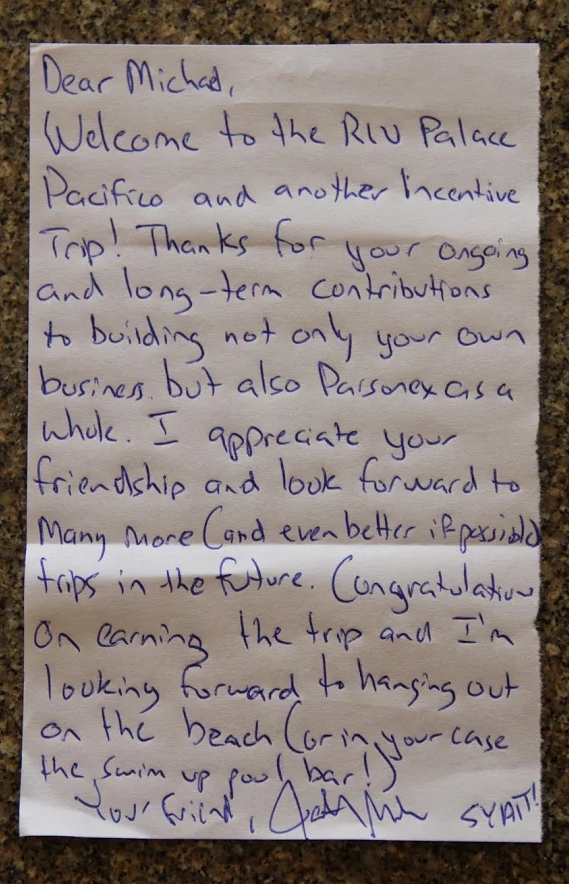 Dear Michael,
Welcome to the RIU Palace
Pacifico and another Incentive
Trip! Thanks for your ongoing
and long-term contributions
to building not only your own
business, but also Parsonex as a
whole. I appreciate your
friendship and look forward to
Many more (and even better if possible)
trips in the future. Congratulations
On earning the trip and I'm
looking forward to hanging out
on the beach (or in your case
the swim up pool bar!)
Your friend, SYAIT!